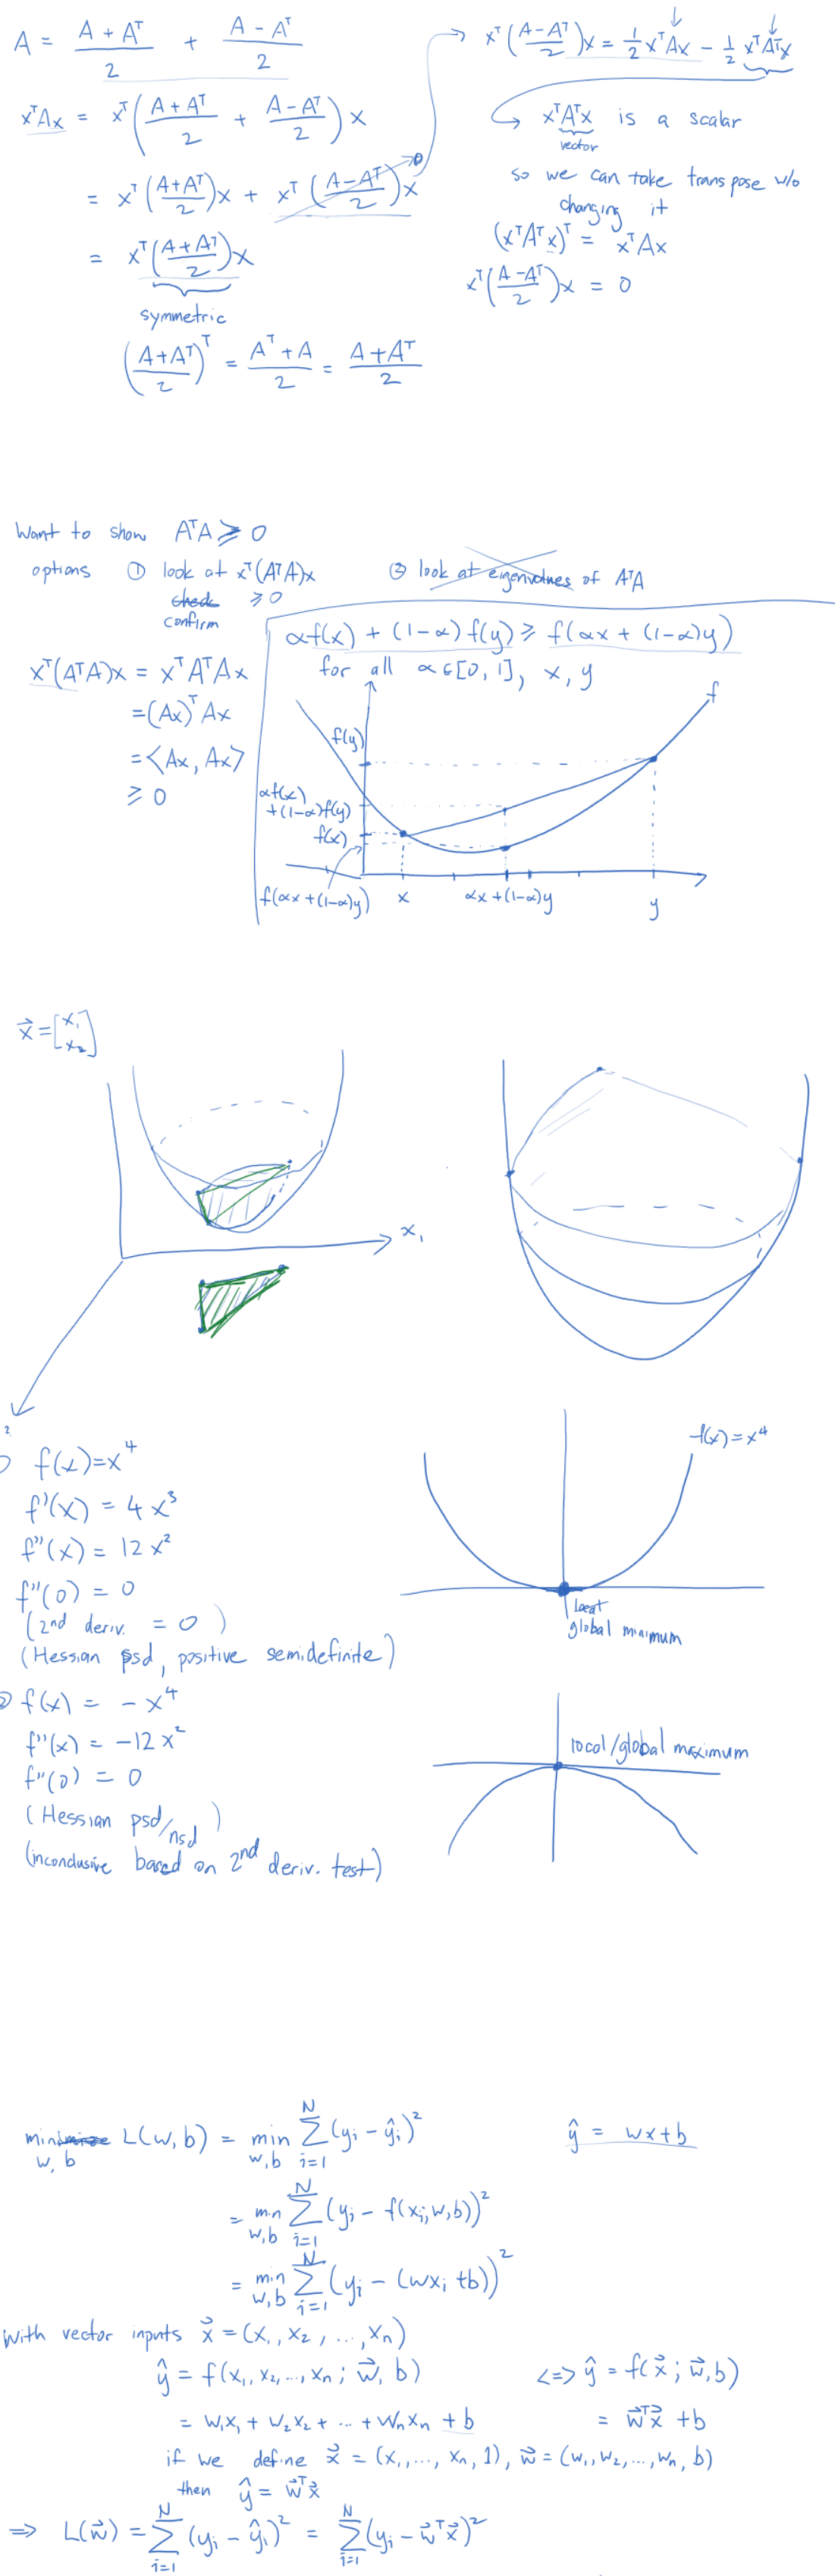 A = (A + Aᵀ)/2 + (A - Aᵀ)/2
xᵀAx = xᵀ((A + Aᵀ)/2 + (A - Aᵀ)/2) x
= xᵀ((A+Aᵀ)/2)x + xᵀ((A-Aᵀ)/2)x → 0
= xᵀ((A+Aᵀ)/2)x
symmetric
((A+Aᵀ)/2)ᵀ = (Aᵀ+A)/2 = (A+Aᵀ)/2
→ xᵀ((A-Aᵀ)/2)x = ½xᵀAx - ½xᵀAᵀx
→ xᵀAᵀx is a scalar
vector
so we can take transpose w/o
changing it
(xᵀAᵀx)ᵀ = xᵀAx
xᵀ((A-Aᵀ)/2)x = 0
Want to show AᵀA ≽ 0
options ① look at xᵀ(AᵀA)x ② look at eigenvalues of AᵀA
check ≥ 0
confirm
xᵀ(AᵀA)x = xᵀAᵀAx
= (Ax)ᵀAx
= ⟨Ax, Ax⟩
≥ 0
αf(x) + (1-α)f(y) ≥ f(αx + (1-α)y)
for all α∈[0,1], x, y
f
f(y)
αf(x)
+(1-α)f(y)
f(x)
f(αx+(1-α)y) x αx+(1-α)y y
x⃗ = [x₁ x₂]
x₁
2
f(x)=x⁴
f'(x) = 4x³
f''(x) = 12x²
f''(0) = 0
(2nd deriv. = 0)
(Hessian psd, positive semidefinite)
f(x)=x⁴
local
global minimum
② f(x) = -x⁴
f''(x) = -12x²
f''(0) = 0
(Hessian psd/nsd)
(inconclusive based on 2nd deriv. test)
local/global maximum
minimize L(w,b) = min Σ(yᵢ - ŷᵢ)² ŷ = wx+b
w,b w,b i=1 N
= min Σ(yᵢ - f(xᵢ;w,b))²
w,b i=1 N
= min Σ(yᵢ - (wxᵢ+b))²
w,b i=1 N
With vector inputs x⃗ = (x₁, x₂, ..., xₙ)
ŷ = f(x₁, x₂, ..., xₙ; w⃗, b) <=> ŷ = f(x⃗; w⃗, b)
= w₁x₁ + w₂x₂ + ... + wₙxₙ + b = w⃗ᵀx⃗ + b
if we define x⃗ = (x₁, ..., xₙ, 1), w⃗ = (w₁, w₂, ..., wₙ, b)
then ŷ = w⃗ᵀx⃗
⇒ L(w⃗) = Σ(yᵢ - ŷᵢ)² = Σ(yᵢ - w⃗ᵀx⃗)²
i=1 N i=1 N